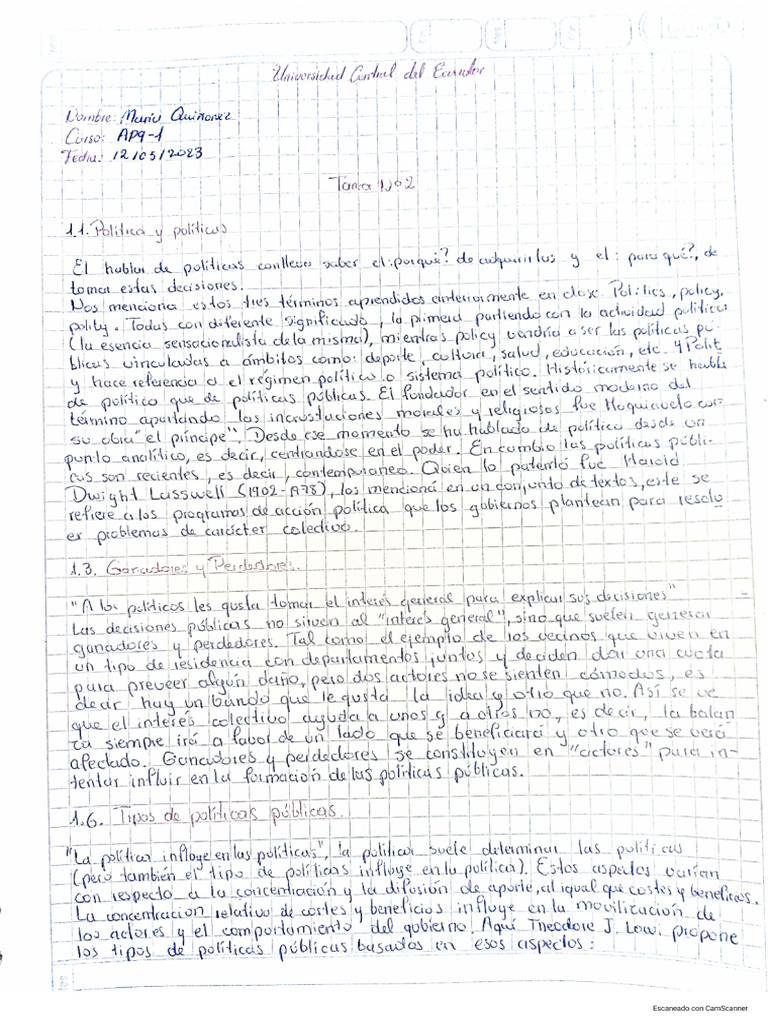 Universidad Central del Ecuador
Nombre: María Quiñonez
Curso: AP9-1
Fecha: 12/05/2023
Tarea No2
1.1. Política y políticas
El hablar de políticas conlleva saber el ¡porqué? de adquirirlas y el ¡ para qué?, de
tomar estas decisiones.
Nos menciona estos tres términos aprendidos anteriormente en clase Politics, policy,
polity. Todas con diferente significado, la primera partiendo con la actividad política
(la esencia sensacionalista de la misma), mientras policy vendría a ser las políticas pú
blicas vinculadas a ámbitos como: deporte, cultura, salud, educación, etc. y Polit
y hace referencia a el régimen político o sistema político. Históricamente se habla
de política que de políticas públicas. El fundador en el sentido moderno del
término apartando las incrustaciones morales y religiosos fue Maquiavelo con
su obra "el príncipe". Desde ese momento se ha hablado de política desde un
punto analítico, es decir, centrandose en el poder. En cambio las políticas públi-
cas son recientes, es decir, contemporaneo. Quien lo patentó fue Harold
Dwight Lasswell (1902-1978), los mencioná en un conjunto de textos, este se
refiere a los programas de acción política que los gobiernos plantean para resolv
er problemas de carácter colectivo.
1.3. Ganadores y Perdedores.
"A los políticos les gusta tomar el interés general para explicar sus decisiones"
Las decisiones públicas no sirven al "interés general", sino que suelen generar
ganadores y perdedores. Tal como el ejemplo de los vecinos que viven en
un tipo de residencia con departamentos juntos y deciden dar una cuota
para preveer algún daño, pero dos actores no se sienten cómodos, es
decir hay un bando que le gusta la idea y otro que no. Así se ve
que el interés colectivo ayuda a unos y a otros no, es decir, la balan
za siempre irá a favor de un lado que se beneficiará y otro que se verá
afectado. Ganadores y perdedores se constituyen en "actores" para in-
tentar influir en la formación de las políticas públicas.
1.6. Tipos de políticas públicas.
"La política influye en las políticas", la política suele determinar las políticas
(pero también el tipo de políticas influye en la política). Estos aspectos varían
con respecto a la concentración y la difusión de aporte, al igual que costes y beneficios.
La concentracion relativa de costes y beneficios influye en la movilización de
los actores y el comportamiento del gobierno. Aquí Theodore J. Lowi propone
los tipos de políticas públicas basados en esos aspectos:
Escaneado con CamScanner